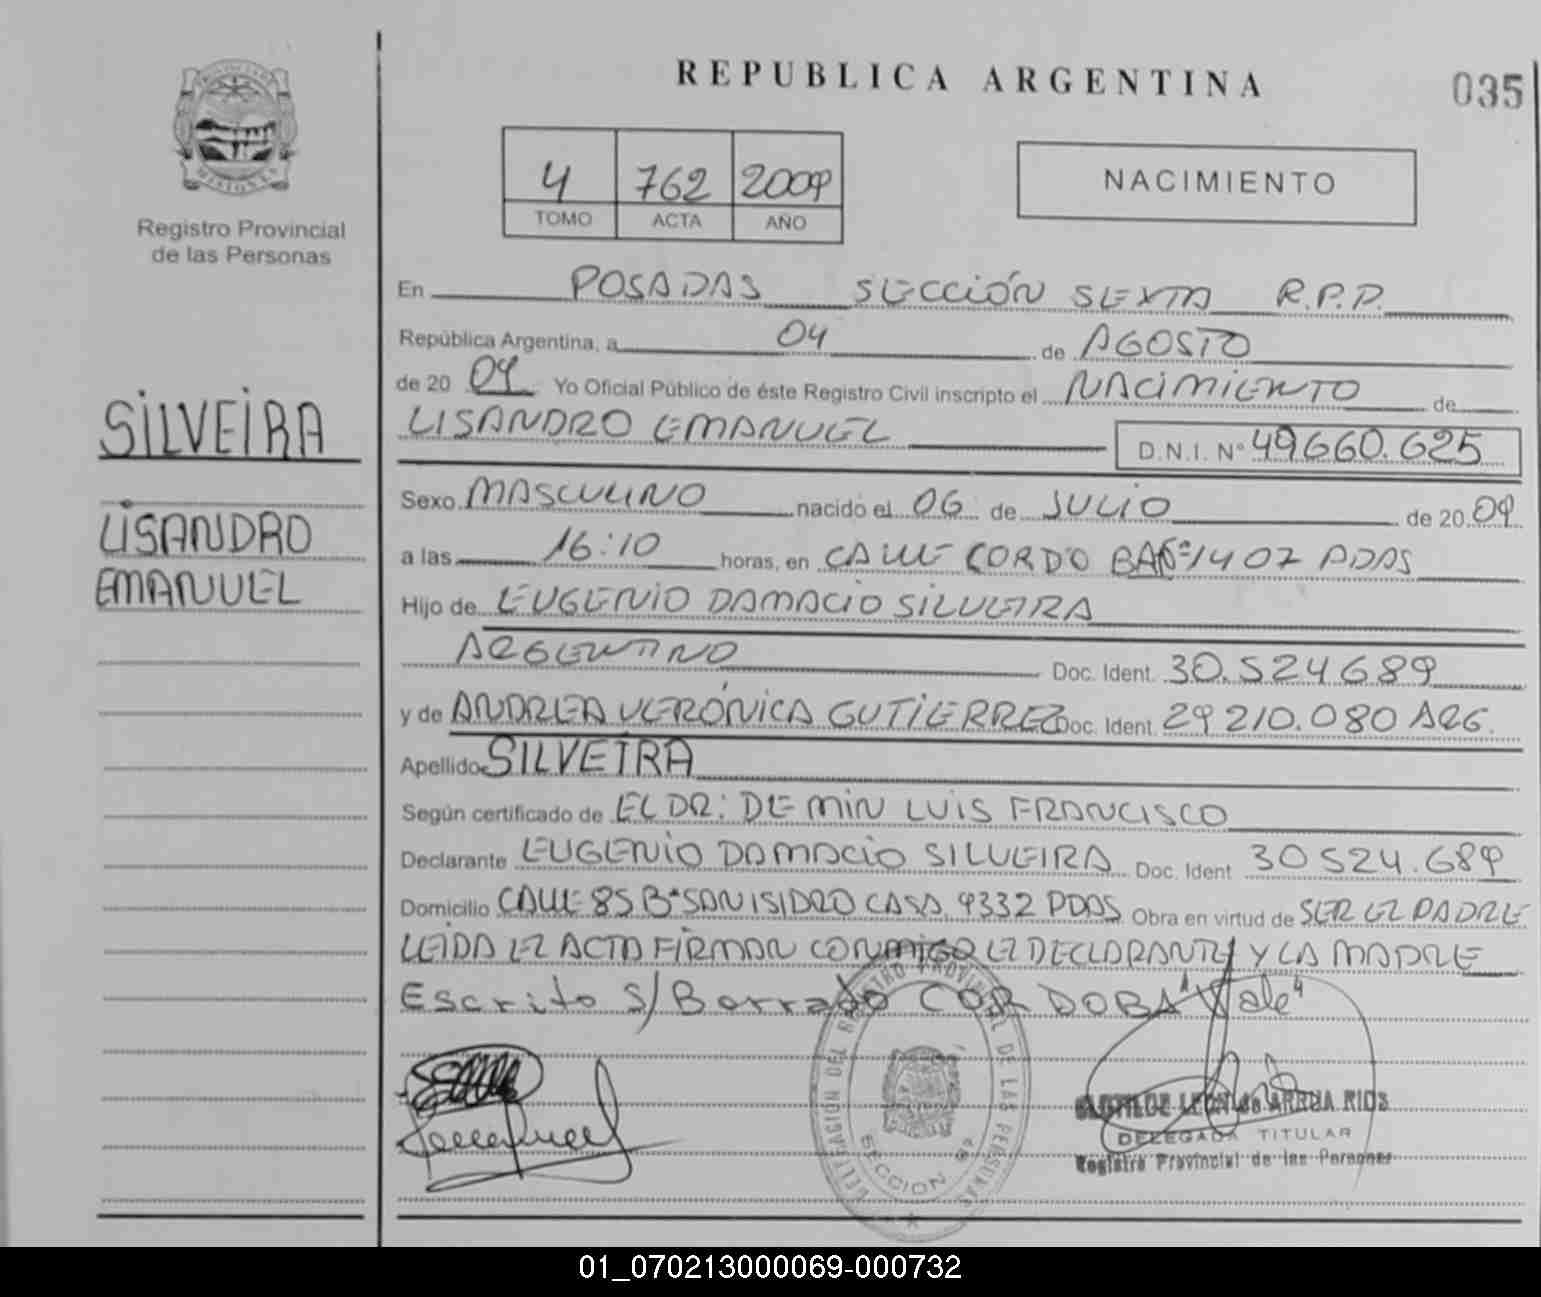 REPUBLICA ARGENTINA
035
PROVINCIA DE
MISIONES
Registro Provincial
de las Personas
4 762 2009
TOMO ACTA AÑO
NACIMIENTO
En POSADAS SECCIÓN SEXTA R.P.P.
República Argentina, a 04 de AGOSTO
de 20 09 Yo Oficial Público de éste Registro Civil inscripto el NACIMIENTO de
LISANDRO EMANUEL D.N.I. Nº 49660.625
SILVEIRA
LISANDRO
EMANUEL
Sexo MASCULINO nacido el 06 de JULIO de 20 09
a las 16:10 horas, en CALLE CORDOBA Nº 1407 PDAS
Hijo de EUGENIO DAMACIO SILVEIRA
ARGENTINO Doc. Ident. 30.524689
y de ANDREA VERÓNICA GUTIERREZ Doc. Ident. 29210.080 ARG.
Apellido SILVEIRA
Según certificado de EL DR: DE MIN LUIS FRANCISCO
Declarante EUGENIO DAMACIO SILVEIRA Doc. Ident 30524.689
Domicilio CALLE 85 Bº SAN ISIDRO CASA 9332 PDAS Obra en virtud de SER EL PADRE
LEIDA EL ACTA FIRMAN CONMIGO EL DECLARANTE Y LA MADRE
Escrito S/ Borrado CORDOBA "Vale"
DELEGACION DEL REGISTRO PROVINCIAL DE LAS PERSONAS
SECCION 6º
CLOTILDE LEON de ARRUA RIOS
DELEGADA TITULAR
Registro Provincial de las Personas
01_070213000069-000732